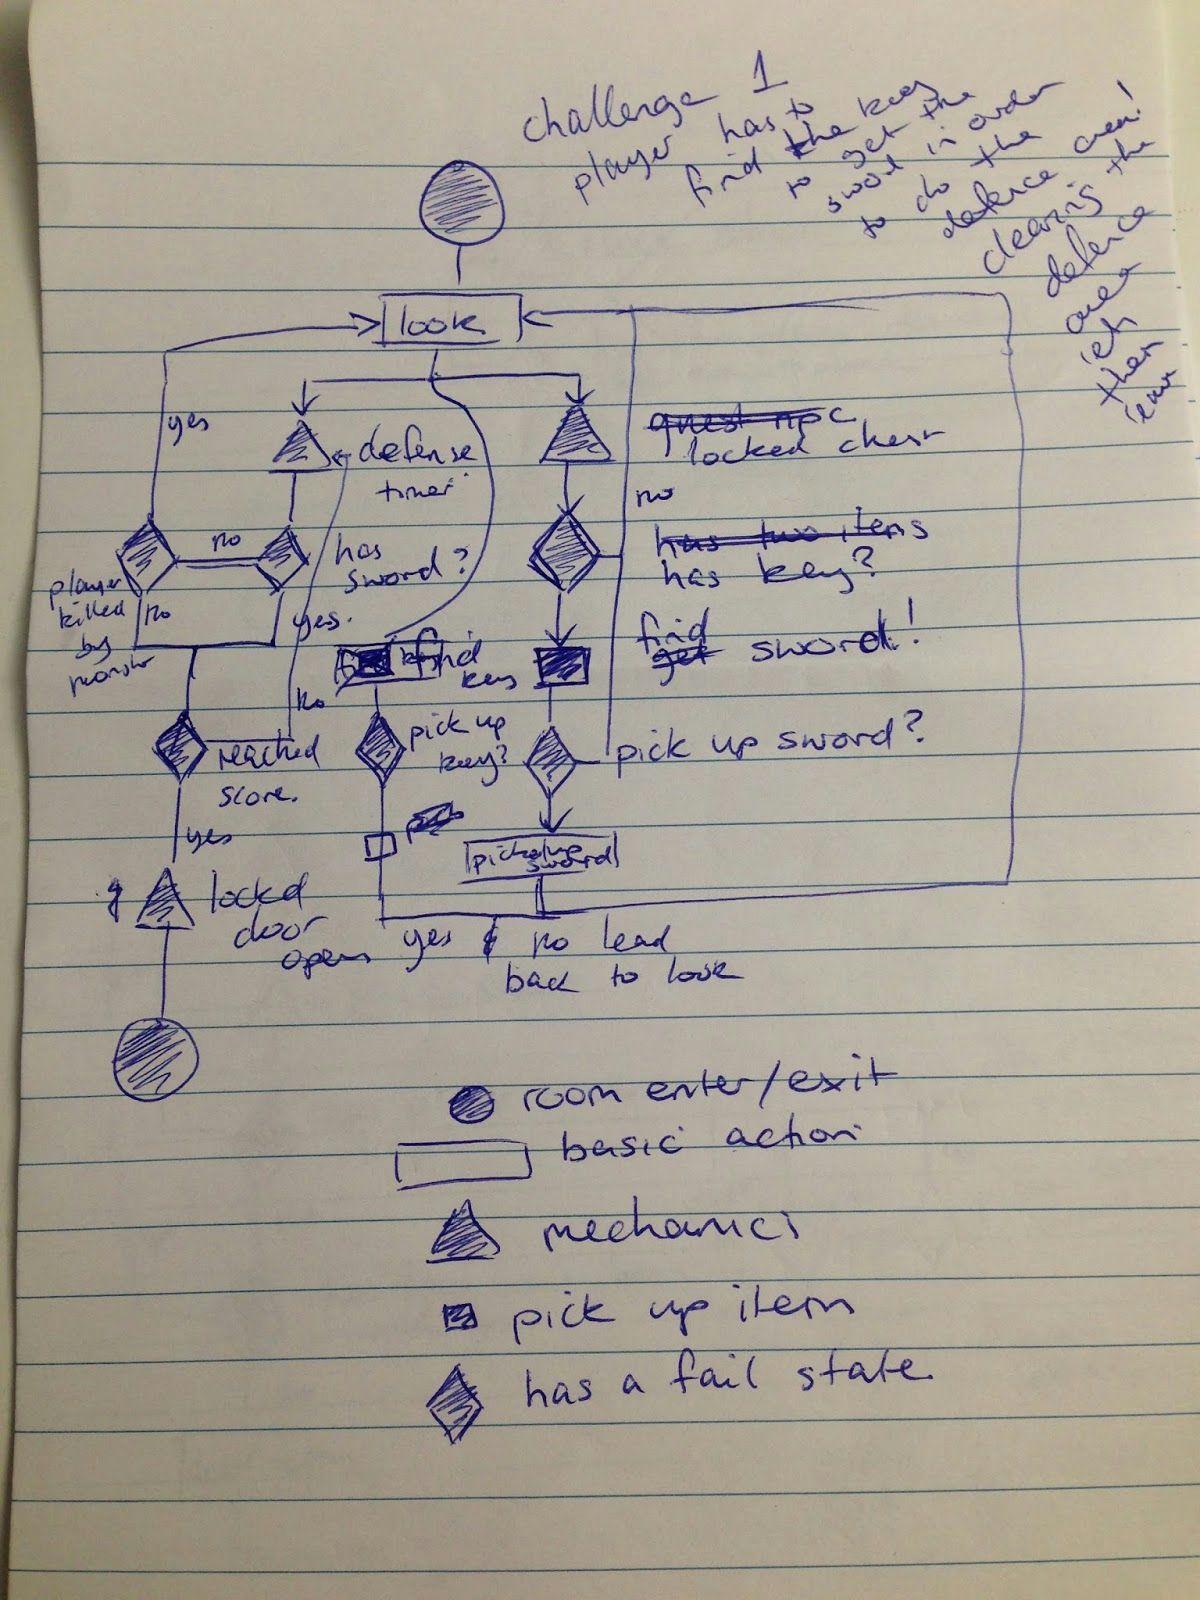 challenge 1
player has to
find the key
to get the
sword in order
to do the
defence area!
clearing the
defence
area
lets
them
leave
look
yes
defense
timer
quest npc
locked chest
no
has two items
has key?
no
has
sword?
player
killed
by
monster
no
yes.
find
key
find
get sword!
no
pick up
key?
pick up sword?
reached
score.
yes
pick up
sword
locked
door
opens
yes
no lead
back to look
room enter/exit
basic action
mechanics
pick up item
has a fail state.